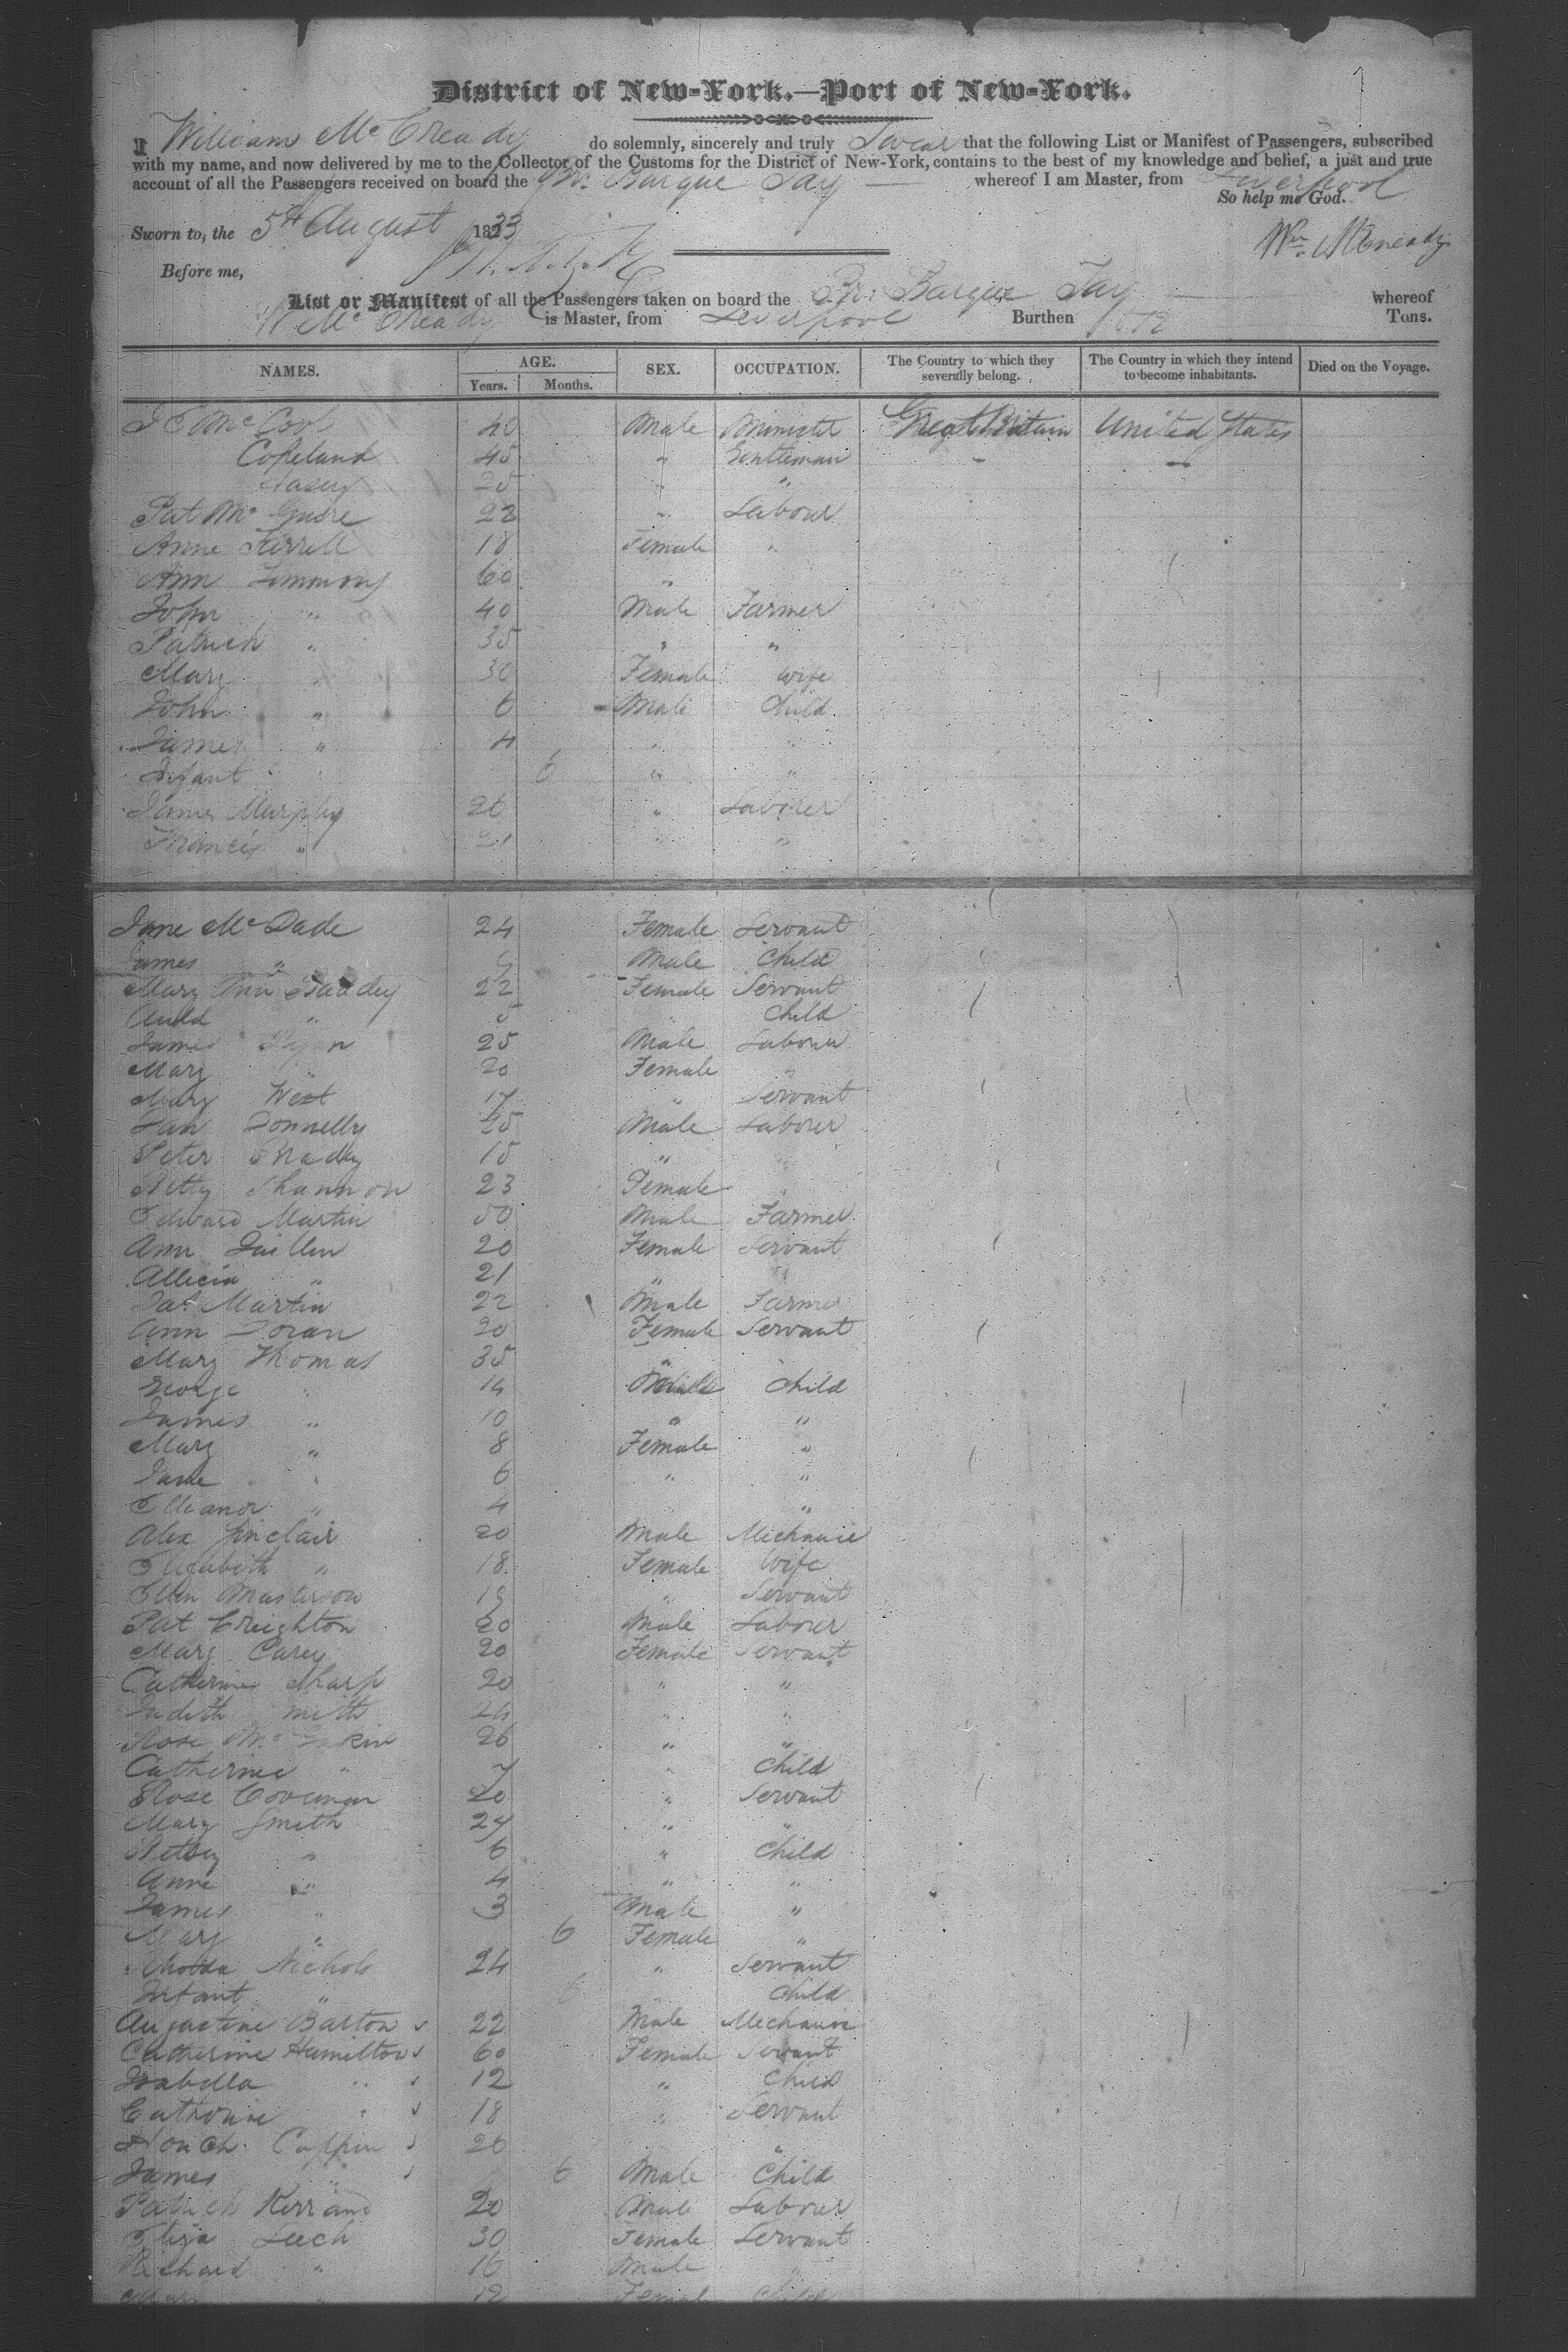 District of New-York.—Port of New-York.
I William Mc Cready do solemnly, sincerely and truly Swear that the following List or Manifest of Passengers, subscribed
with my name, and now delivered by me to the Collector of the Customs for the District of New-York, contains to the best of my knowledge and belief, a just and true
account of all the Passengers received on board the Br: Barque Tay whereof I am Master, from Liverpool
So help me God.
Sworn to, the 5th August 1833
Wm
Before me,
List or Manifest of all the Passengers taken on board the Br: Barque Tay whereof
W Mc Cready is Master, from Liverpool Burthen Tons.
NAMES. AGE. Years. Months. SEX. OCCUPATION. The Country to which they severally belong. The Country in which they intend to become inhabitants. Died on the Voyage.
40 Male Minister Great Britain United States
Copeland 45 " Gentleman
25 "
Pat Mc Guire 22 " Labour
Anne Farrell 18 Female "
Ann Timmons 60 "
John " 40 Male Farmer
Patrick " 35 " "
Mary " 30 Female Wife
John " 6 Male Child
James " 4 " "
Infant " 6 " "
James Murphy 26 " Laborer
Francis " 21 " "
Jane Mc Dade 24 Female Servant
James " Male Child
Mary Ann 22 Female Servant
" 5 " Child
James 25 Male Labourer
Mary 20 Female "
Mary West 17 " Servant
Donnelly Male Laborer
Peter 15 "
Shannon 23 Female
Edward Martin 50 Male Farmer
Ann 20 Female Servant
Allecia " 21 "
Jas Martin 22 Male Farmer
Ann Doran 20 Female Servant
Mary Thomas 35 "
George " 14 Male Child
James " 10 " "
Mary " 8 Female "
Jane " 6 " "
Elleanor " 4 "
Alex Sinclair 20 Male Mechanic
Elizabeth " 18 Female Wife
Ellen Masterson 19 " Servant
Pat Creighton 20 Male Laborer
Mary Carey 20 Female Servant
Catherine Sharp 20 " "
Judith Smith 24 " "
Rose Mc 26 " "
Catherine " 7 " Child
Rose 20 " Servant
Mary Smith 24 " "
Betsey " 6 " Child
Anne " 4 " "
James " 3 Male "
Mary " 6 Female "
Nichols 24 " Servant
Infant " 6 Child
Augustine Barton 22 Male Mechanic
Catherine Hamilton 60 Female Servant
Isabella " 12 " Child
Catherine " 18 " Servant
20 "
James " 6 Male Child
Patrick 20 Male Labourer
Eliza Leech 30 Female Servant
Richard " 16 Male "
Mary " 12 Female Child